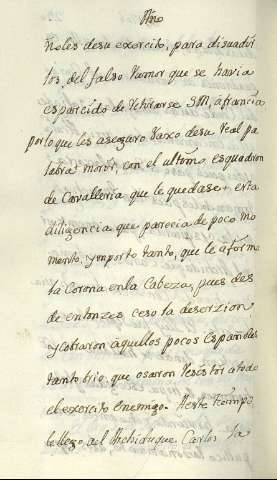 ñoles desu exercito, para disuadir
los, del falso rumor que se havia
esparcido de retirarse S.M. a francia
por lo que les aseguro baxo desu Real pa
labra morir, con el ultimo esquadron
de Cavalleria que le quedase: esta
diligencia que parecia de poco mo
mento, ymporto tanto, que le afirmo
la Corona enla Cabeza, pues des
de entonzes ceso la deserzion
y cobraron aquellos pocos Españoles
tanto brio, que osaron resistir atodo
el exercito enemigo. Aeste tiempo
le llego, al Archiduque Carlos la